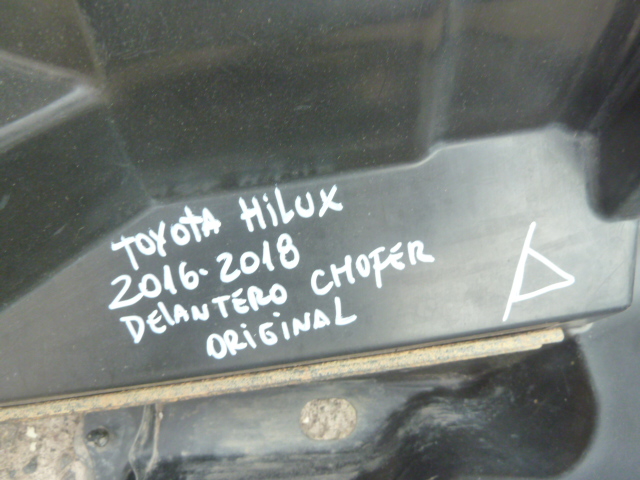 TOYOTA HiLUX
2016-2018
DElANTERO CHOFER
ORIGINAL
D